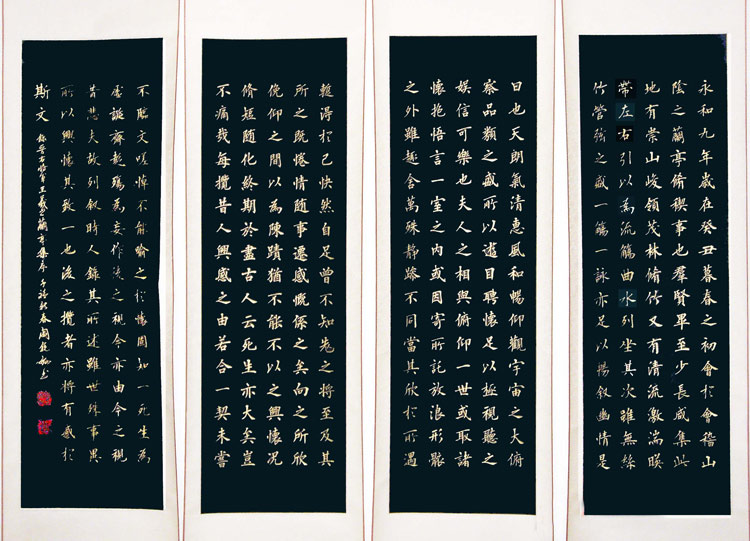 永和九年歲在癸丑暮春之初會於會稽山
陰之蘭亭脩稧事也羣賢畢至少長咸集此
地有崇山峻領茂林脩竹又有清流激湍暎
帶左右引以為流觴曲水列坐其次雖無絲
竹管弦之盛一觴一詠亦足以暢叙幽情是
日也天朗氣清惠風和暢仰觀宇宙之大俯
察品類之盛所以遊目騁懷足以極視聽之
娛信可樂也夫人之相與俯仰一世或取諸
懷抱悟言一室之內或因寄所託放浪形骸
之外雖趣舍萬殊靜躁不同當其欣於所遇
暫得於己快然自足曾不知老之將至及其
所之既惓情隨事遷感慨係之矣向之所欣
俛仰之間以為陳跡猶不能不以之興懷況
脩短隨化終期於盡古人云死生亦大矣豈
不痛哉每攬昔人興感之由若合一契未嘗
不臨文嗟悼不能喻之於懷固知一死生為
虛誕齊彭殤為妄作後之視今亦由今之視
昔悲夫故列叙時人錄其所述雖世殊事異
所以興懷其致一也後之攬者亦將有感於
斯文 錄晉右將軍王羲之蘭亭集序